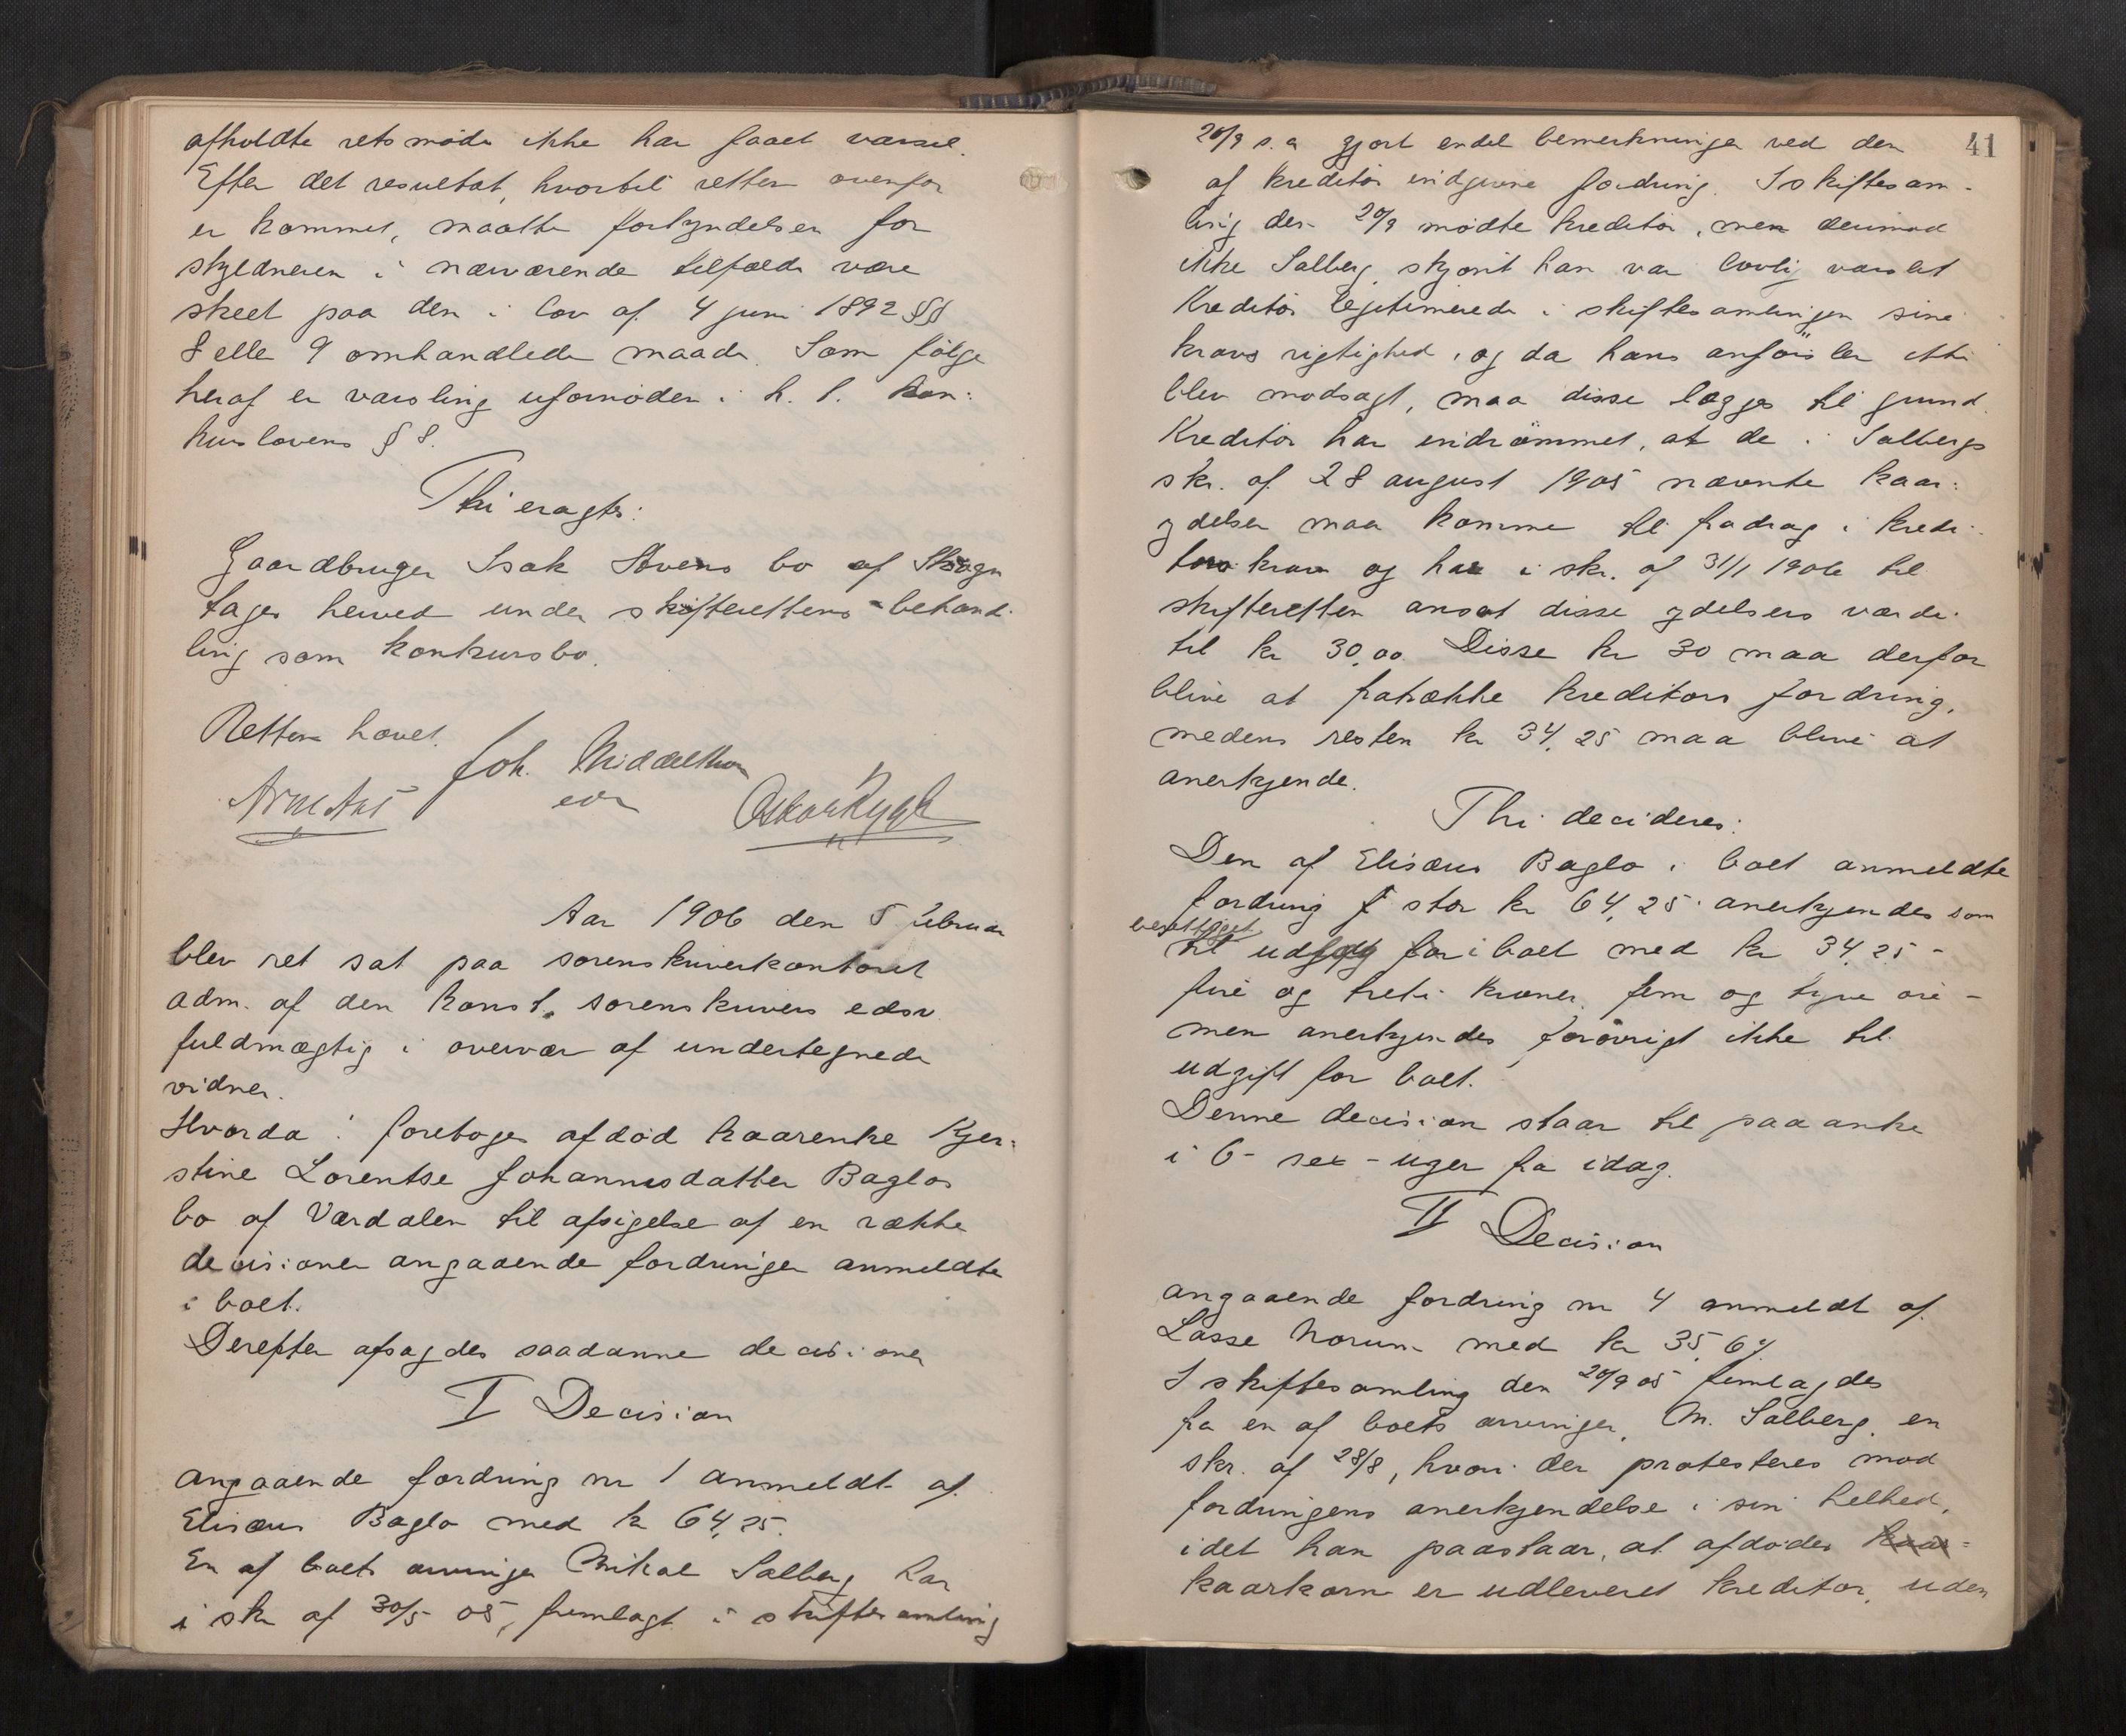 afholdte retsmöde ikke har faaet varsel.
Efter det resultat, hvortil retten ovenfor
er kommet, maatte forkyndelsen for
skyldneren i nærværende tilfælde være
skeet paa den i lov af 4 juni 1892 §§
8 eller 9 omhandlede maade. Som fölge
heraf er varsling ufornöden i h. t. kon:
kurslovens § 8.
Thi eragtes:
Gaardbruger Isak Stvens bo af Skogn
tages herved under skifterettens behand:
ling som konkursbo.
Retten hævet.
Joh. Middelthon
edv
Oskar Rygh
Aar 1906 den 5 februar
blev ret sat paa sorenskriverkontoret
adm. af den konst. sorenskrivers edsv.
fuldmægtig i overvær af undertegnede
vidner.
Hvorda: foretoges afdöd kaarenke Kjer:
stine Lorentse Johannesdatter Baglos
bo af Værdalen til afsigelse af en række
decisioner angaaende fordringer anmeldte
i boet.
Derefter afsagdes saadanne decisioner
I Decision
angaaende fordring nr 1 anmeldt af
Elisæus Baglo med kr 64,25.
En af boets arvinger Mikal Salberg har
i skr af 30/5 05, fremlagt i skiftesamling
41
20/9 s. a gjort endel bemerkninger ved den
af kreditor indgivne fordring. I skiftesam-
ling den 20/9 mödte kreditor, men derimod
ikke Salberg, skjönt han var lovlig varslet
Kreditor legitimerede i skiftesamlingen sine
kravs rigtighed, og da hans anförsler ikke
blev modsagt, maa disse lægges til grund.
Kreditor har indrömmet, at de i Salbergs
skr. af 28 august 1905 nævnte kaar:
ydelser maa komme til fradrag i kredi:
tors krav og har i skr. af 31/1 1906 til
skifteretten ansat disse ydelsers værdi
til kr 30,00. Disse kr 30 maa derfor
blive at fratrække kreditors fordring,
medens resten kr 34,25 maa blive at
anerkjende.
Thi decideres:
Den af Elisæus Baglo i boet anmeldte
fordring stor kr 64,25 anerkjendes som
berettiget
til udlæg i boet med kr 34,25 -
fire og treti kroner fem og tyve öre -
men anerkjendes forövrigt ikke til
udgift for boet.
Denne decision staar til paaanke
i 6 - sex - uger fra idag.
II Decision
angaaende fordring nr 4 anmeldt af
Lasse Norum med kr 35,64
I skiftesamling den 20/9 05 fremlagdes
fra en af boets arvinger, M. Salberg en
skr. af 28/8, hvori der protesteres mod
fordringens anerkjendelse i sin helhed,
idet han paastaar, at afdödes kaar-
kaarkorn er udleveret kreditor, uden